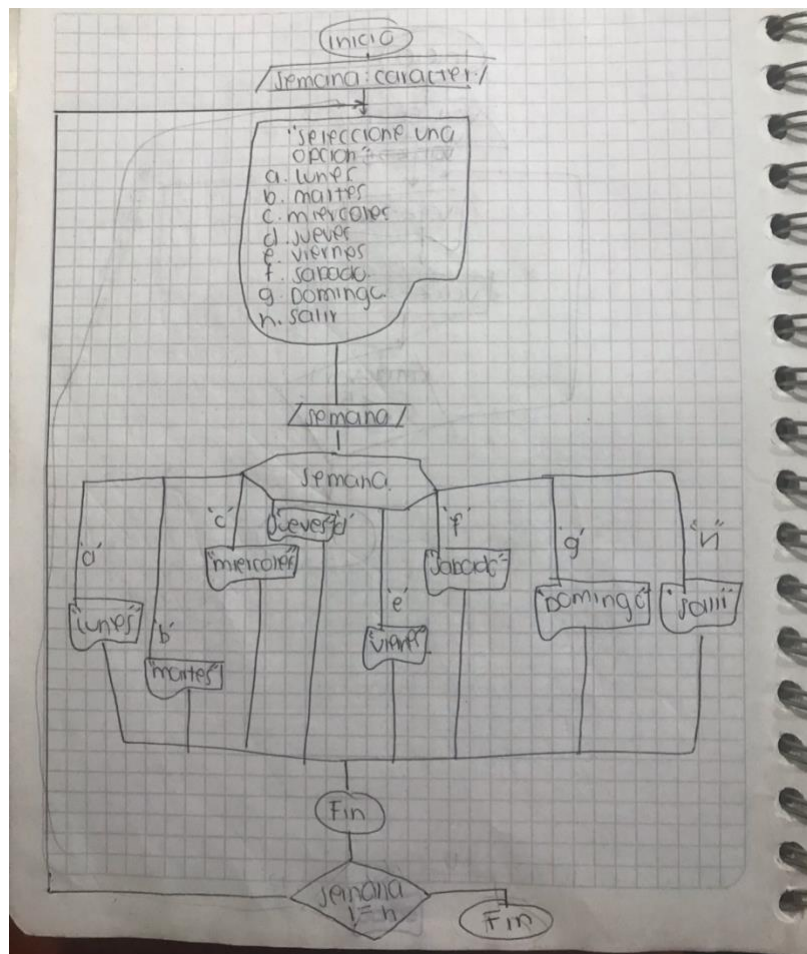 inicio
semana: caracter
"seleccione una
opcion"
a. lunes
b. martes
c. miercoles
d. jueves
e. viernes
f. sabado
g. Domingo
h. salir
semana
semana
'a'
'b'
'c'
'd'
'e'
'f'
'g'
"h"
"lunes"
"martes"
"miercoles"
"jueves"
"sabado"
"Domingo"
"salir"
Fin
semana
!= h
Fin